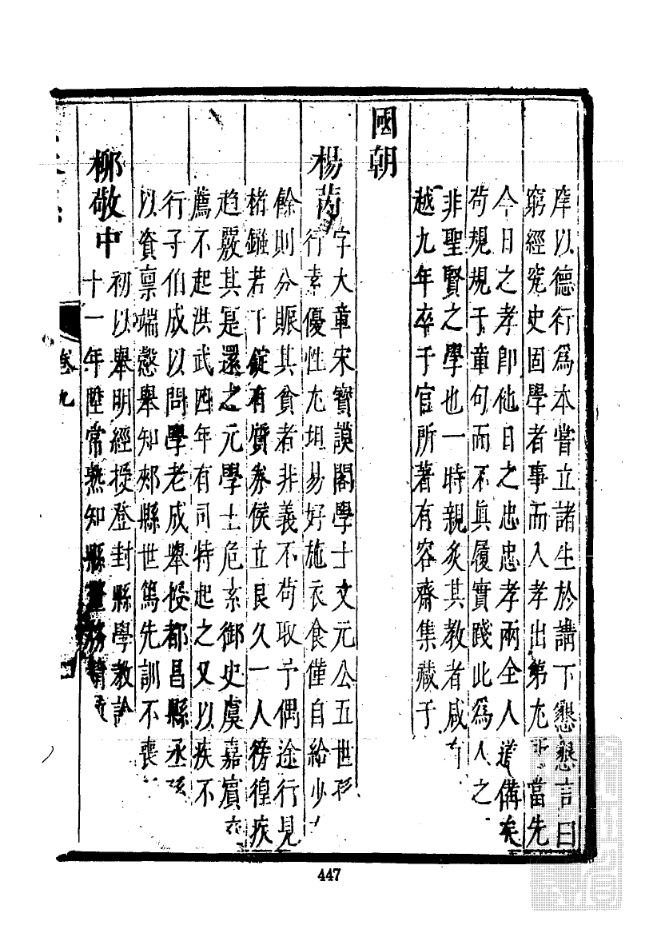 庠以德行爲本嘗立諸生於講下懇懇言曰
窮經究史固學者事而入孝出第尤當先
今日之孝卽他日之忠忠孝兩全人道備矣
苟規規于章句而不眞履實踐此爲人之
非聖賢之學也一時親炙其教者咸
越九年卒于官所著有容齋集藏于
國朝
楊芮字大章宋寶謨閣學士文元公五世
行素優性尤坦易好施衣食僅自給少
餘則分賑其貧者非義不苟取予偶途行見
楮鏹若干錠有質劵俟立良久一人徬徨疾
趋嚴其是還之元學士危素御史虞嘉賓
薦不起洪武四年有司特起之又以疾不
行子伯成以問學老成舉授都昌縣丞孫
以資禀端慤舉知郟縣世篤先訓不喪
桺敬中初以舉明經授登封縣學教諭
十一年陞常熟知縣
卷九
447